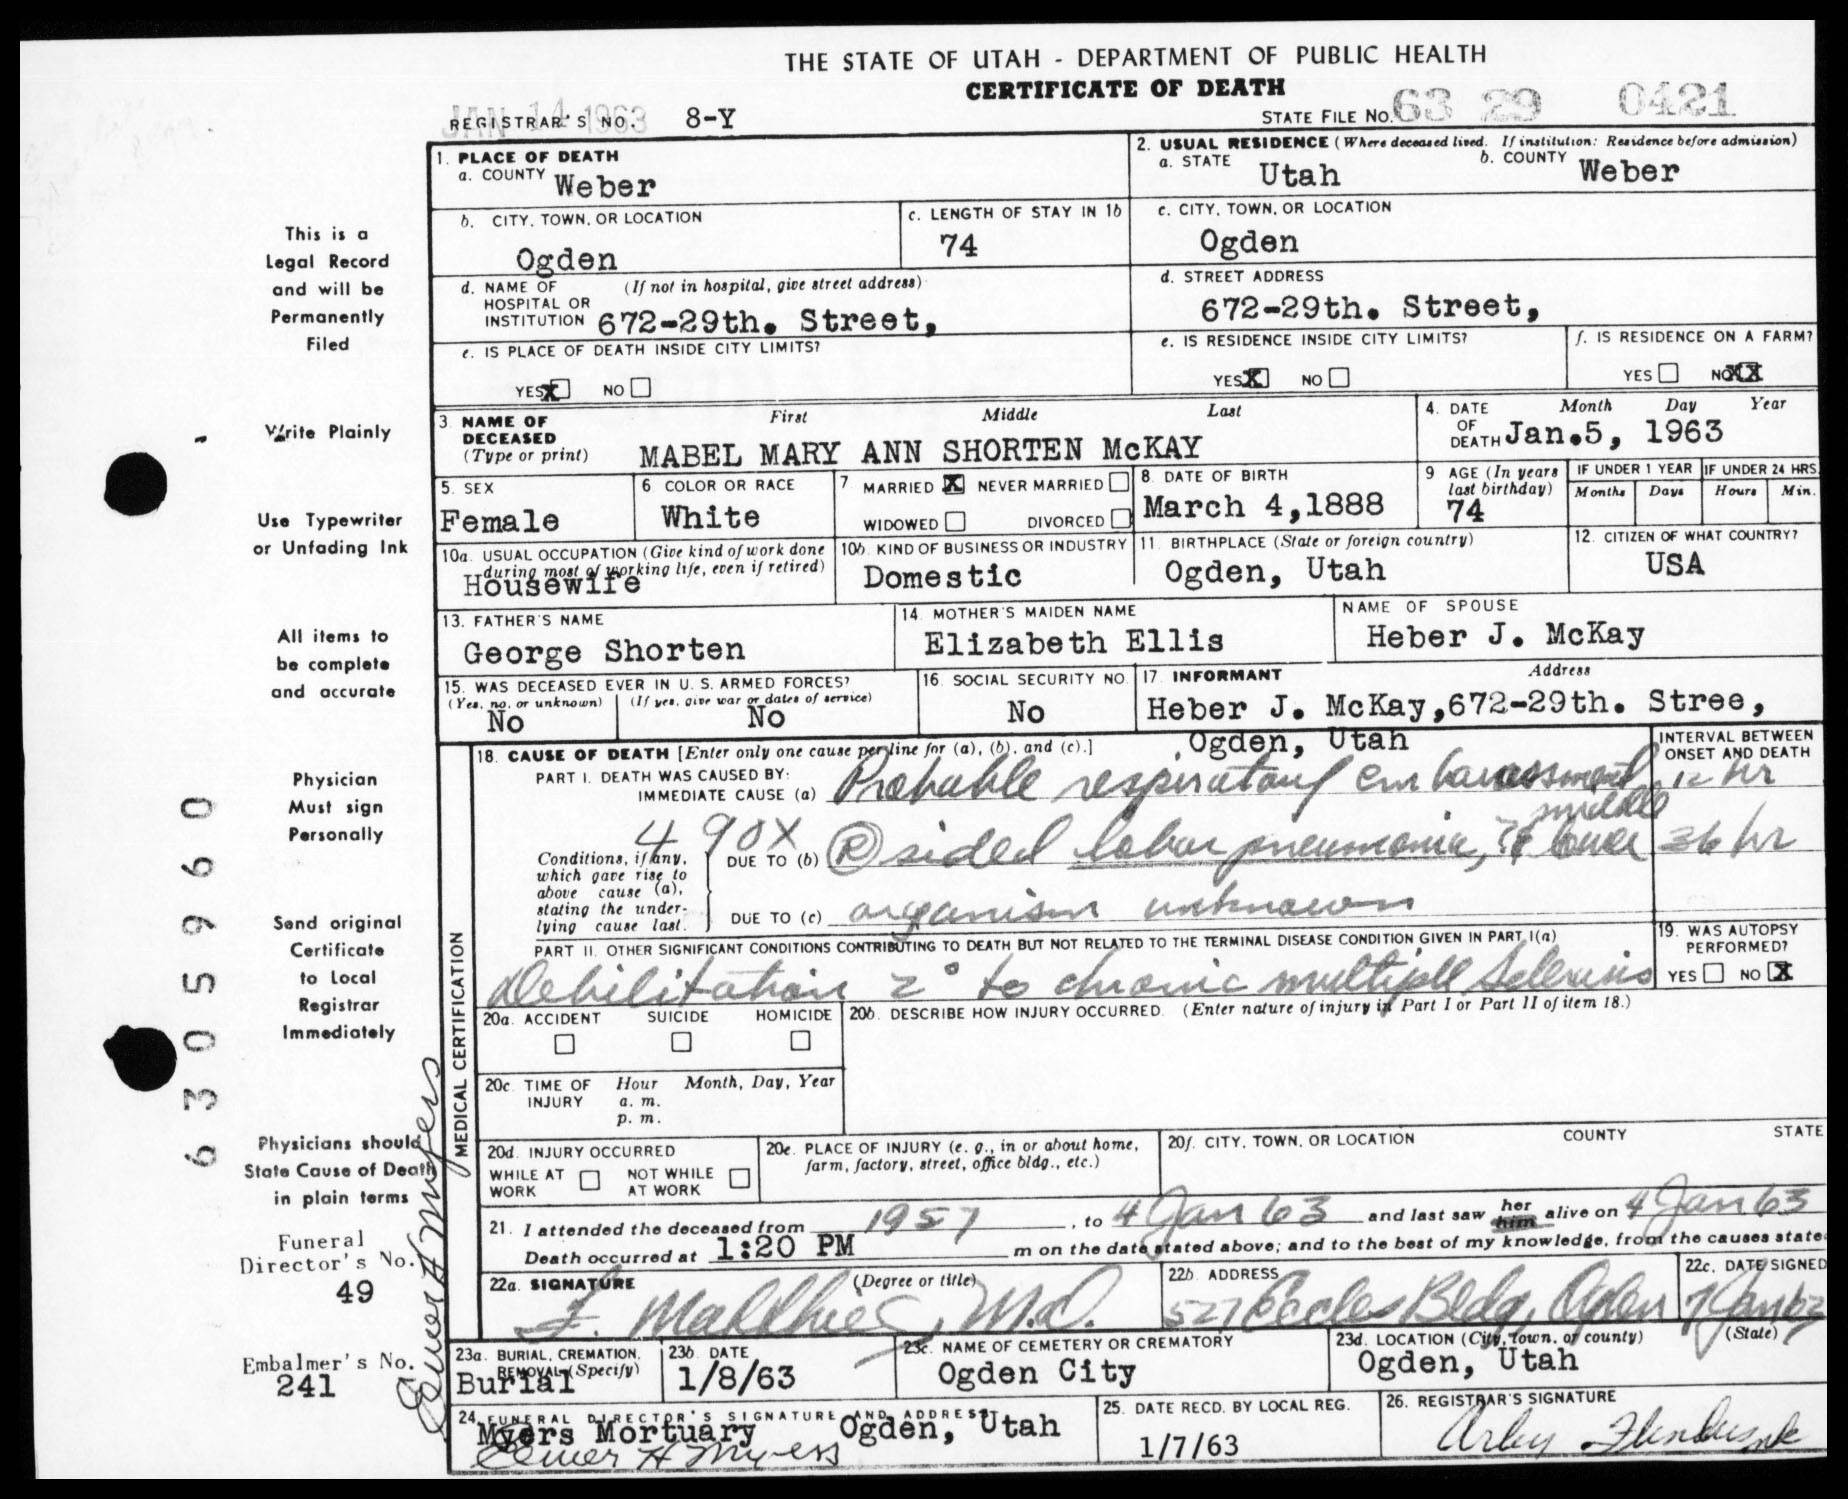 THE STATE OF UTAH - DEPARTMENT OF PUBLIC HEALTH
CERTIFICATE OF DEATH
JAN 14 1963
REGISTRAR'S NO. 8-Y
STATE FILE NO. 63 29 0421
This is a
Legal Record
and will be
Permanently
Filed
Write Plainly
Use Typewriter
or Unfading Ink
All items to
be complete
and accurate
Physician
Must sign
Personally
Send original
Certificate
to Local
Registrar
Immediately
Physicians should
State Cause of Death
in plain terms
Funeral
Director's No.
49
Embalmer's No.
241
6305960
Elmer H Myers
1. PLACE OF DEATH
a. COUNTY Weber
2. USUAL RESIDENCE (Where deceased lived. If institution: Residence before admission)
a. STATE Utah b. COUNTY Weber
b. CITY, TOWN, OR LOCATION Ogden
c. LENGTH OF STAY IN 1b 74
c. CITY, TOWN, OR LOCATION Ogden
d. NAME OF HOSPITAL OR INSTITUTION (If not in hospital, give street address) 672-29th. Street,
d. STREET ADDRESS 672-29th. Street,
e. IS PLACE OF DEATH INSIDE CITY LIMITS?
YES X NO
e. IS RESIDENCE INSIDE CITY LIMITS?
YES X NO
f. IS RESIDENCE ON A FARM?
YES NO XX
3. NAME OF DECEASED (Type or print) First Middle Last
MABEL MARY ANN SHORTEN McKAY
4. DATE OF DEATH Month Day Year
Jan.5, 1963
5. SEX Female
6. COLOR OR RACE White
7. MARRIED X NEVER MARRIED
WIDOWED DIVORCED
8. DATE OF BIRTH March 4,1888
9 AGE (In years last birthday) 74
IF UNDER 1 YEAR Months Days
IF UNDER 24 HRS. Hours Min.
10a. USUAL OCCUPATION (Give kind of work done during most of working life, even if retired) Housewife
10b. KIND OF BUSINESS OR INDUSTRY Domestic
11. BIRTHPLACE (State or foreign country) Ogden, Utah
12. CITIZEN OF WHAT COUNTRY? USA
13. FATHER'S NAME George Shorten
14. MOTHER'S MAIDEN NAME Elizabeth Ellis
NAME OF SPOUSE Heber J. McKay
15. WAS DECEASED EVER IN U. S. ARMED FORCES?
(Yes, no, or unknown) No
(If yes, give war or dates of service) No
16. SOCIAL SECURITY NO. No
17. INFORMANT Address
Heber J. McKay,672-29th. Stree,
Ogden, Utah
MEDICAL CERTIFICATION
18. CAUSE OF DEATH [Enter only one cause per line for (a), (b), and (c).]
INTERVAL BETWEEN ONSET AND DEATH
PART I. DEATH WAS CAUSED BY:
IMMEDIATE CAUSE (a) Probable respiratory embarassment 12 hr
490X
Conditions, if any, which gave rise to above cause (a), stating the underlying cause last.
DUE TO (b) R sided lobar pneumonia, middle lower 36 hr
DUE TO (c) organism unknown
PART II. OTHER SIGNIFICANT CONDITIONS CONTRIBUTING TO DEATH BUT NOT RELATED TO THE TERMINAL DISEASE CONDITION GIVEN IN PART I(a)
Debilitation 2° to chronic multiple sclerosis
19. WAS AUTOPSY PERFORMED?
YES NO X
20a. ACCIDENT SUICIDE HOMICIDE
20b. DESCRIBE HOW INJURY OCCURRED. (Enter nature of injury in Part I or Part II of item 18.)
20c. TIME OF INJURY Hour Month, Day, Year
a. m.
p. m.
20d. INJURY OCCURRED
WHILE AT WORK NOT WHILE AT WORK
20e. PLACE OF INJURY (e. g., in or about home, farm, factory, street, office bldg., etc.)
20f. CITY, TOWN, OR LOCATION COUNTY STATE
21. I attended the deceased from 1957, to 4 Jan 63 and last saw her him alive on 4 Jan 63
Death occurred at 1:20 PM m on the date stated above; and to the best of my knowledge, from the causes state
22a. SIGNATURE (Degree or title)
F. Matthies, M.D.
22b. ADDRESS 527 Eccles Bldg, Ogden
22c. DATE SIGNED 7 Jan 63
23a. BURIAL, CREMATION, REMOVAL (Specify) Burial
23b. DATE 1/8/63
23c. NAME OF CEMETERY OR CREMATORY Ogden City
23d. LOCATION (City, town, or county) (State)
Ogden, Utah
24. FUNERAL DIRECTOR'S SIGNATURE AND ADDRESS
Myers Mortuary Ogden, Utah
Elmer H Myers
25. DATE RECD. BY LOCAL REG. 1/7/63
26. REGISTRAR'S SIGNATURE